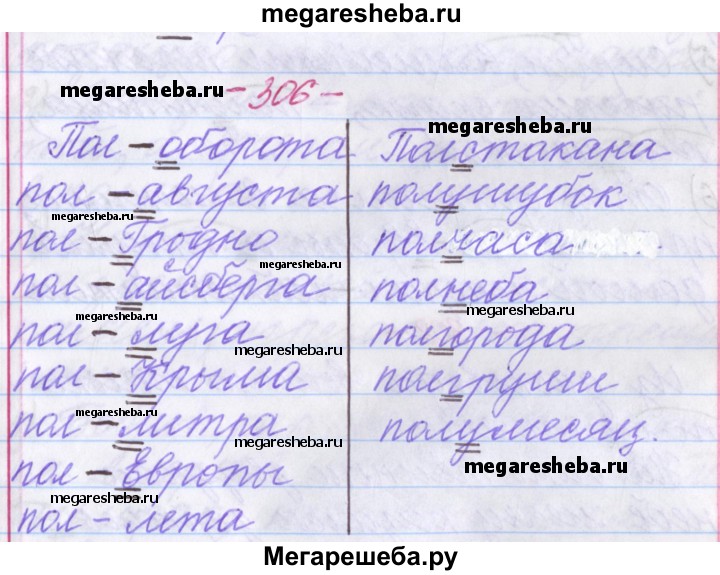 megaresheba.ru
megaresheba.ru
- 306 -
megaresheba.ru
Пол - оборота
пол - августа
megaresheba.ru
пол - Гродно
пол - айсберга
megaresheba.ru
пол - луга
megaresheba.ru
пол - Крыма
megaresheba.ru
пол - литра
пол - Европы
megaresheba.ru
пол - лета
Полстакана
полушубок
полчаса
megaresheba.ru
полнеба
полгорода
megaresheba.ru
полгруши
полумесяц.
megaresheba.ru
megaresheba.ru
Мегарешеба.ру